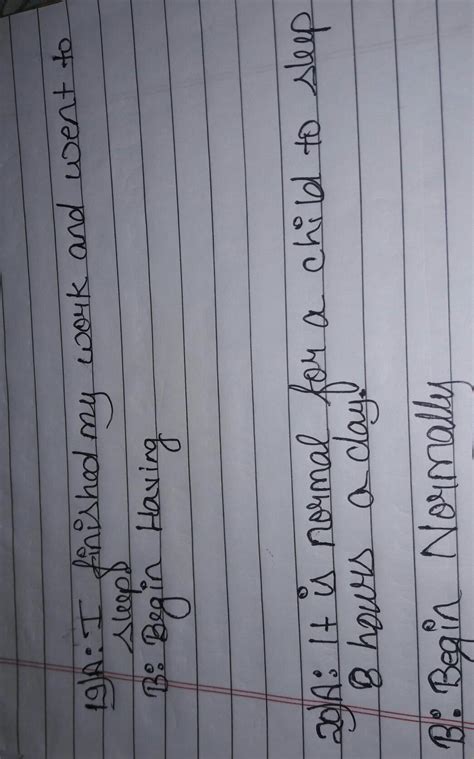 19)A: I finished my work and went to
sleep.
B: Begin Having
20)A: It is normal for a child to sleep
8 hours a day.
B: Begin Normally